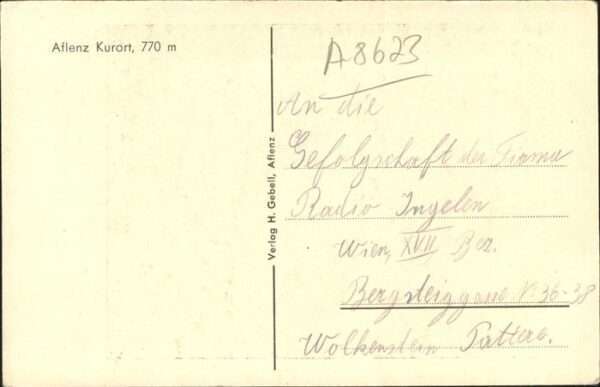 Aflenz Kurort, 770 m
A8623
An die
Gefolgschaft der Firma
Radio Ingelen
Wien, XVII Bez.
Bergsteiggasse N: 36-38
Wolkenstein
Verlag H. Gebell, Aflenz